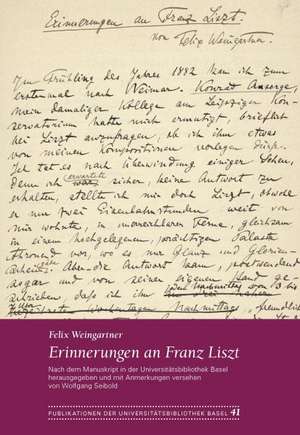 Erinnerungen an Franz Liszt.
von Felix Weingartner.
Im Frühling des Jahres 1882 kam ich zum
erstenmal nach Weimar. Konrad Ansorge,
mein damaliger Kollege am Leipziger Kon-
servatorium hatte mich ermutigt, brieflich
bei Liszt anzufragen, ob ich ihm etwas
von meinen Kompositionen vorlegen dürfe.
Ich tat es nach Überwindung einiger Scheu,
denn ich erwartete sicher, keine Antwort zu
erhalten, stellte ich mir doch Liszt, obwohl
er nur zwei Eisenbahnstunden weit von
mir wohnte, in unerreichbarer Ferne, gleichsam
in einem hochgelegenen, prächtigen Palaste
thronend vor, wo es nur Glanz und Glorien-
schein gab. Aber die Antwort kam, postwendend
sogar und von seiner eigenen Hand ge-
schrieben, dass ich ihn
jeden Nachmittag vom 3 bis
Nachmittags, freundlich
Felix Weingartner
Erinnerungen an Franz Liszt
Nach dem Manuskript in der Universitätsbibliothek Basel
herausgegeben und mit Anmerkungen versehen
von Wolfgang Seibold
PUBLIKATIONEN DER UNIVERSITÄTSBIBLIOTHEK BASEL 41